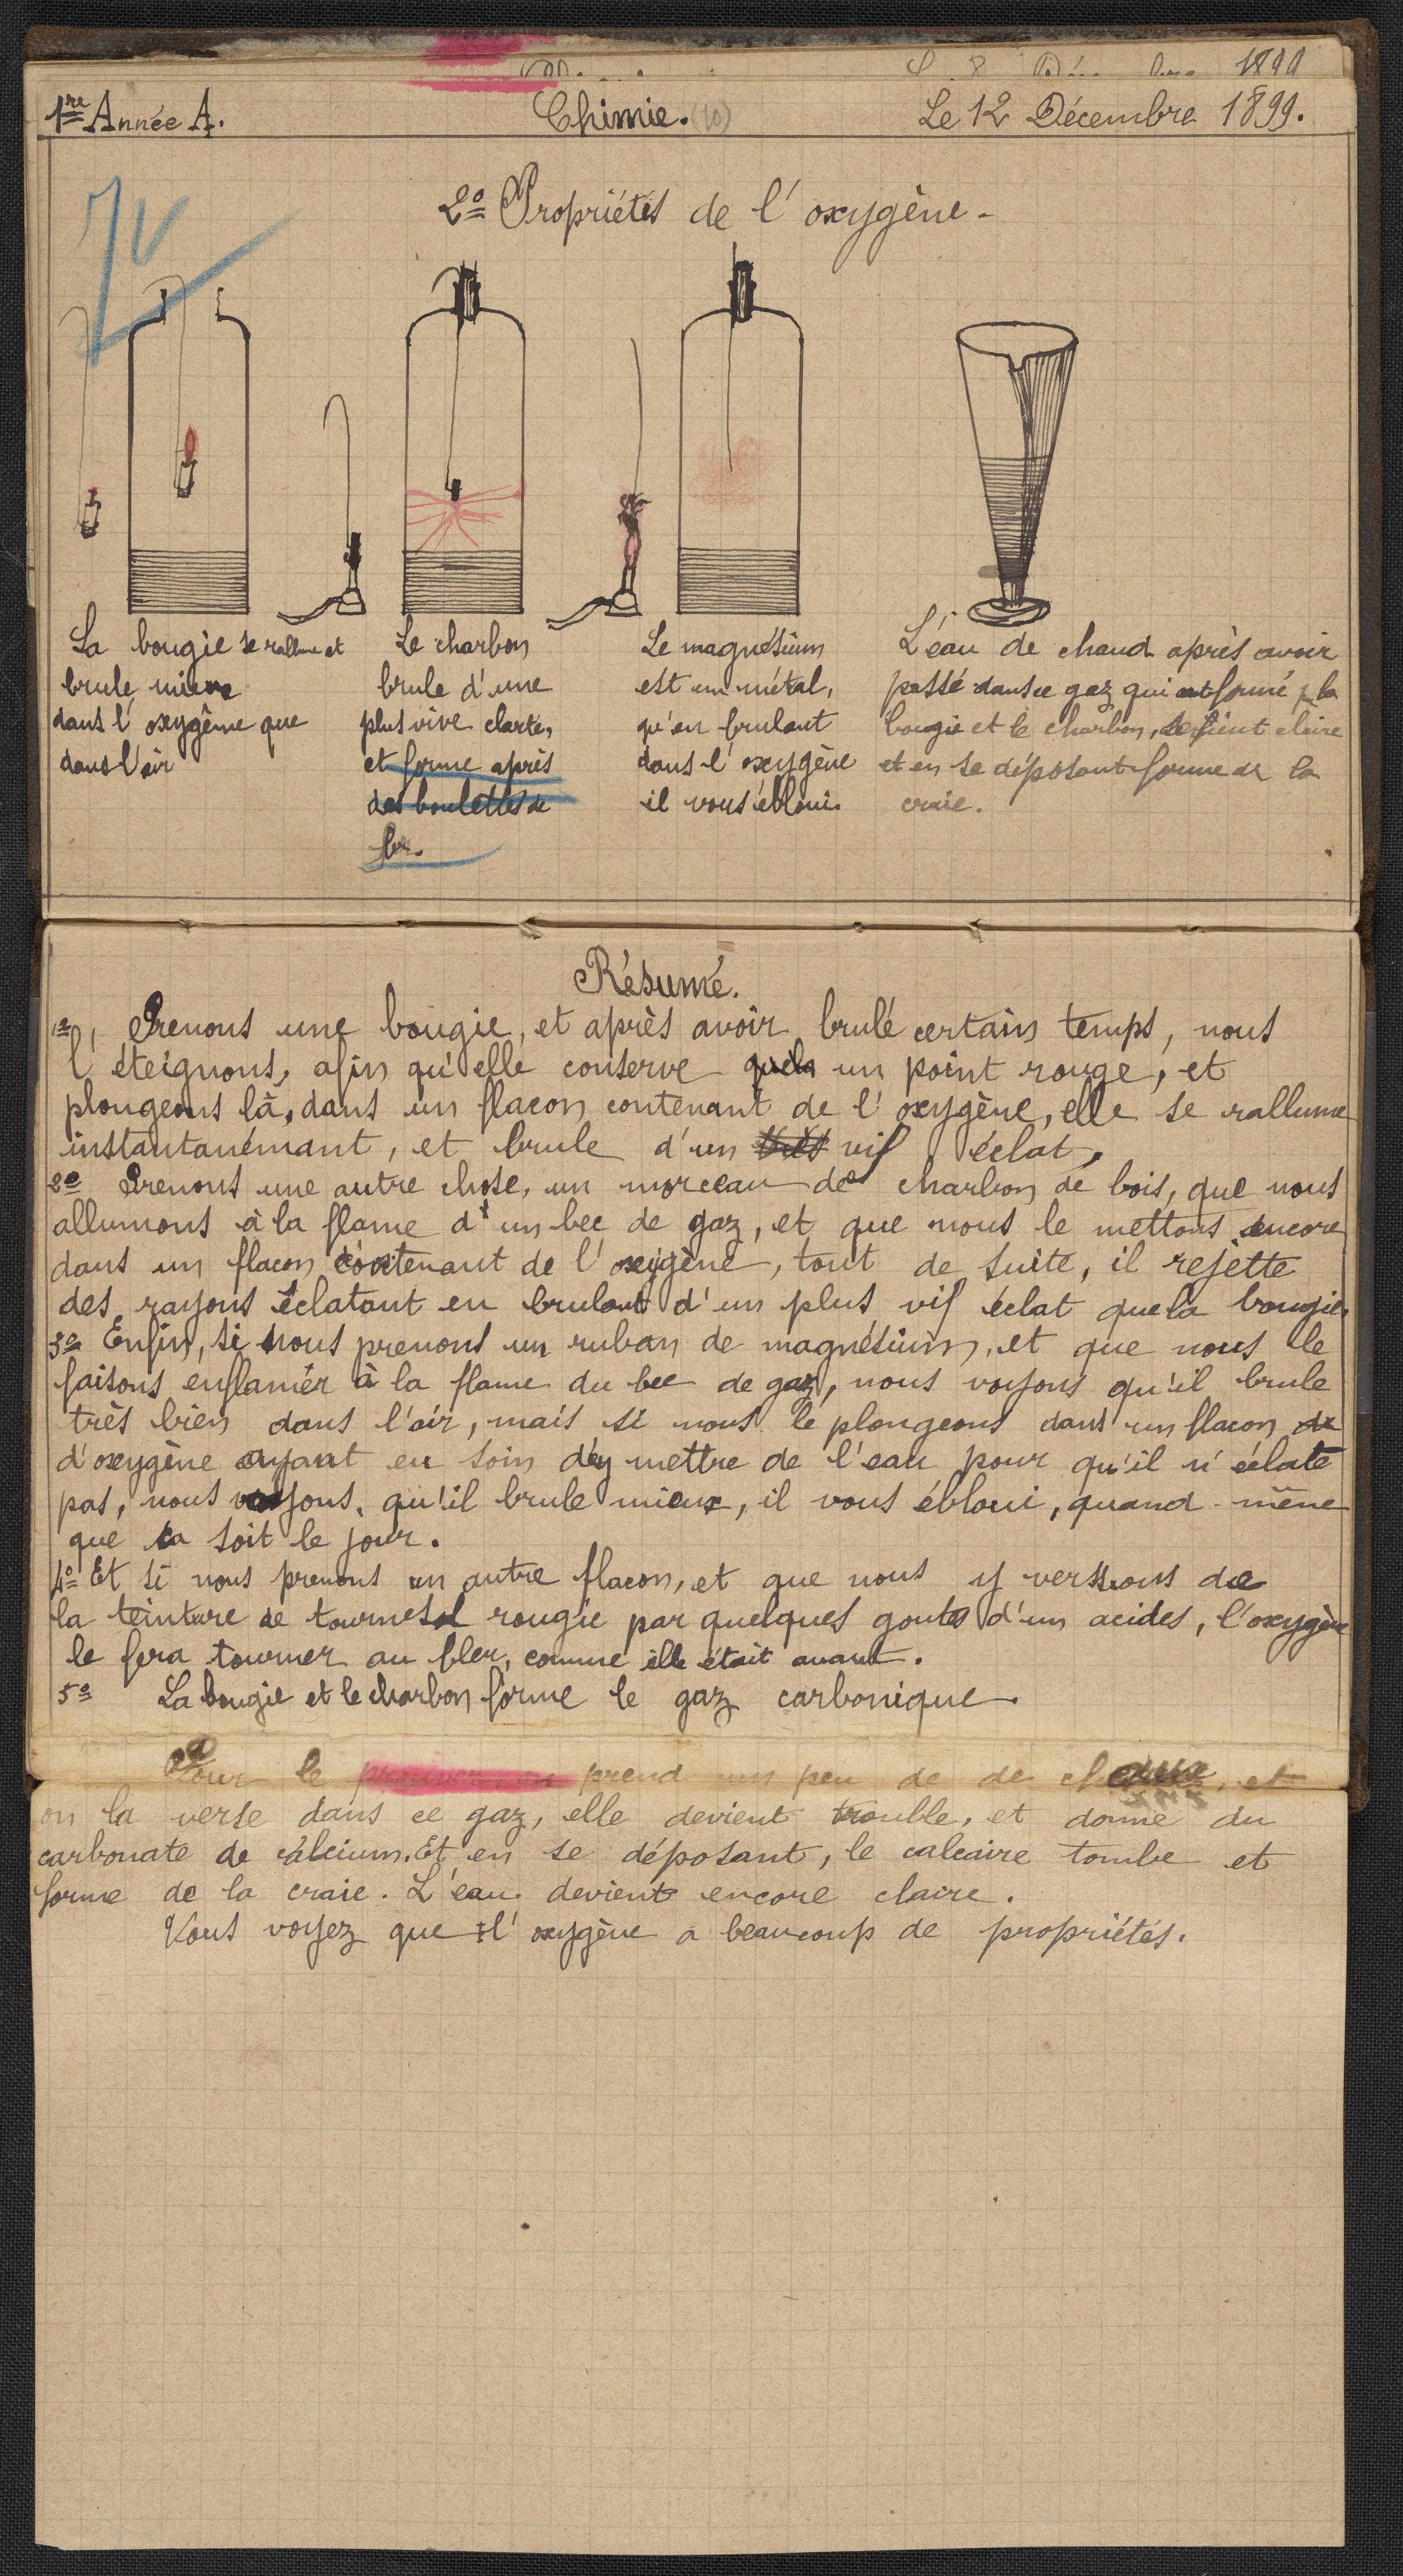 1re Année A. Chimie. (10) Le 12 Décembre 1899.
2º Propriétés de l'oxygène -
La bougie se rallume et
brule mieux
dans l'oxygène que
dans l'air
Le charbon
brule d'une
plus vive clarté,
et forme après
des boulettes de
fer.
Le magnésium
est un métal,
qu'en brulant
dans l'oxygène
il vous ébloui.
L'eau de chaud après avoir
passé dans ce gaz qui est formé par la
bougie et le charbon, devient claire
et en se déposant forme de la
craie.
Résumé.
1º, Prenons une bougie, et après avoir brulé certain temps, nous
l'éteignons, afin qu'elle conserve un point rouge, et
plongeons là, dans un flacon contenant de l'oxygène, elle se rallume
instantanémant, et brule d'un très vif éclat,
2º Prenons une autre chose, un morceau de charbon de bois, que nous
allumons à la flame d'un bec de gaz, et que nous le mettons encore
dans un flacon contenant de l'oxigène, tout de suite, il rejette
des rayons éclatant en brulant d'un plus vif éclat que la bougie
3º Enfin, si nous prenons un ruban de magnésium, et que nous le
faisons enflamér à la flame du bec de gaz, nous voyons qu'il brule
très bien dans l'air, mais si nous le plongeons dans un flacon de
d'oxygène ayant eu soin d'ey mettre de l'eau pour qu'il n'éclate
pas, nous voyons, qu'il brule mieux, il vous ébloui, quand-même
que ça soit le jour.
4º Et si nous prenons un autre flacon, et que nous y verssons de
la teinture de tournesol rougie par quelques goutes d'un acides, l'oxygène
le fera tourner au bleu, comme elle était avant.
5º La bougie et le charbon forme le gaz carbonique.
Pour le prouver, on prend un peu de de chaux, et
on la verse dans ce gaz, elle devient trouble, et donne du
carbonate de calcium. Et en se déposant, le calcaire tombe et
forme de la craie. L'eau devient encore claire.
Vous voyez que l'oxygène a beaucoup de propriétés.